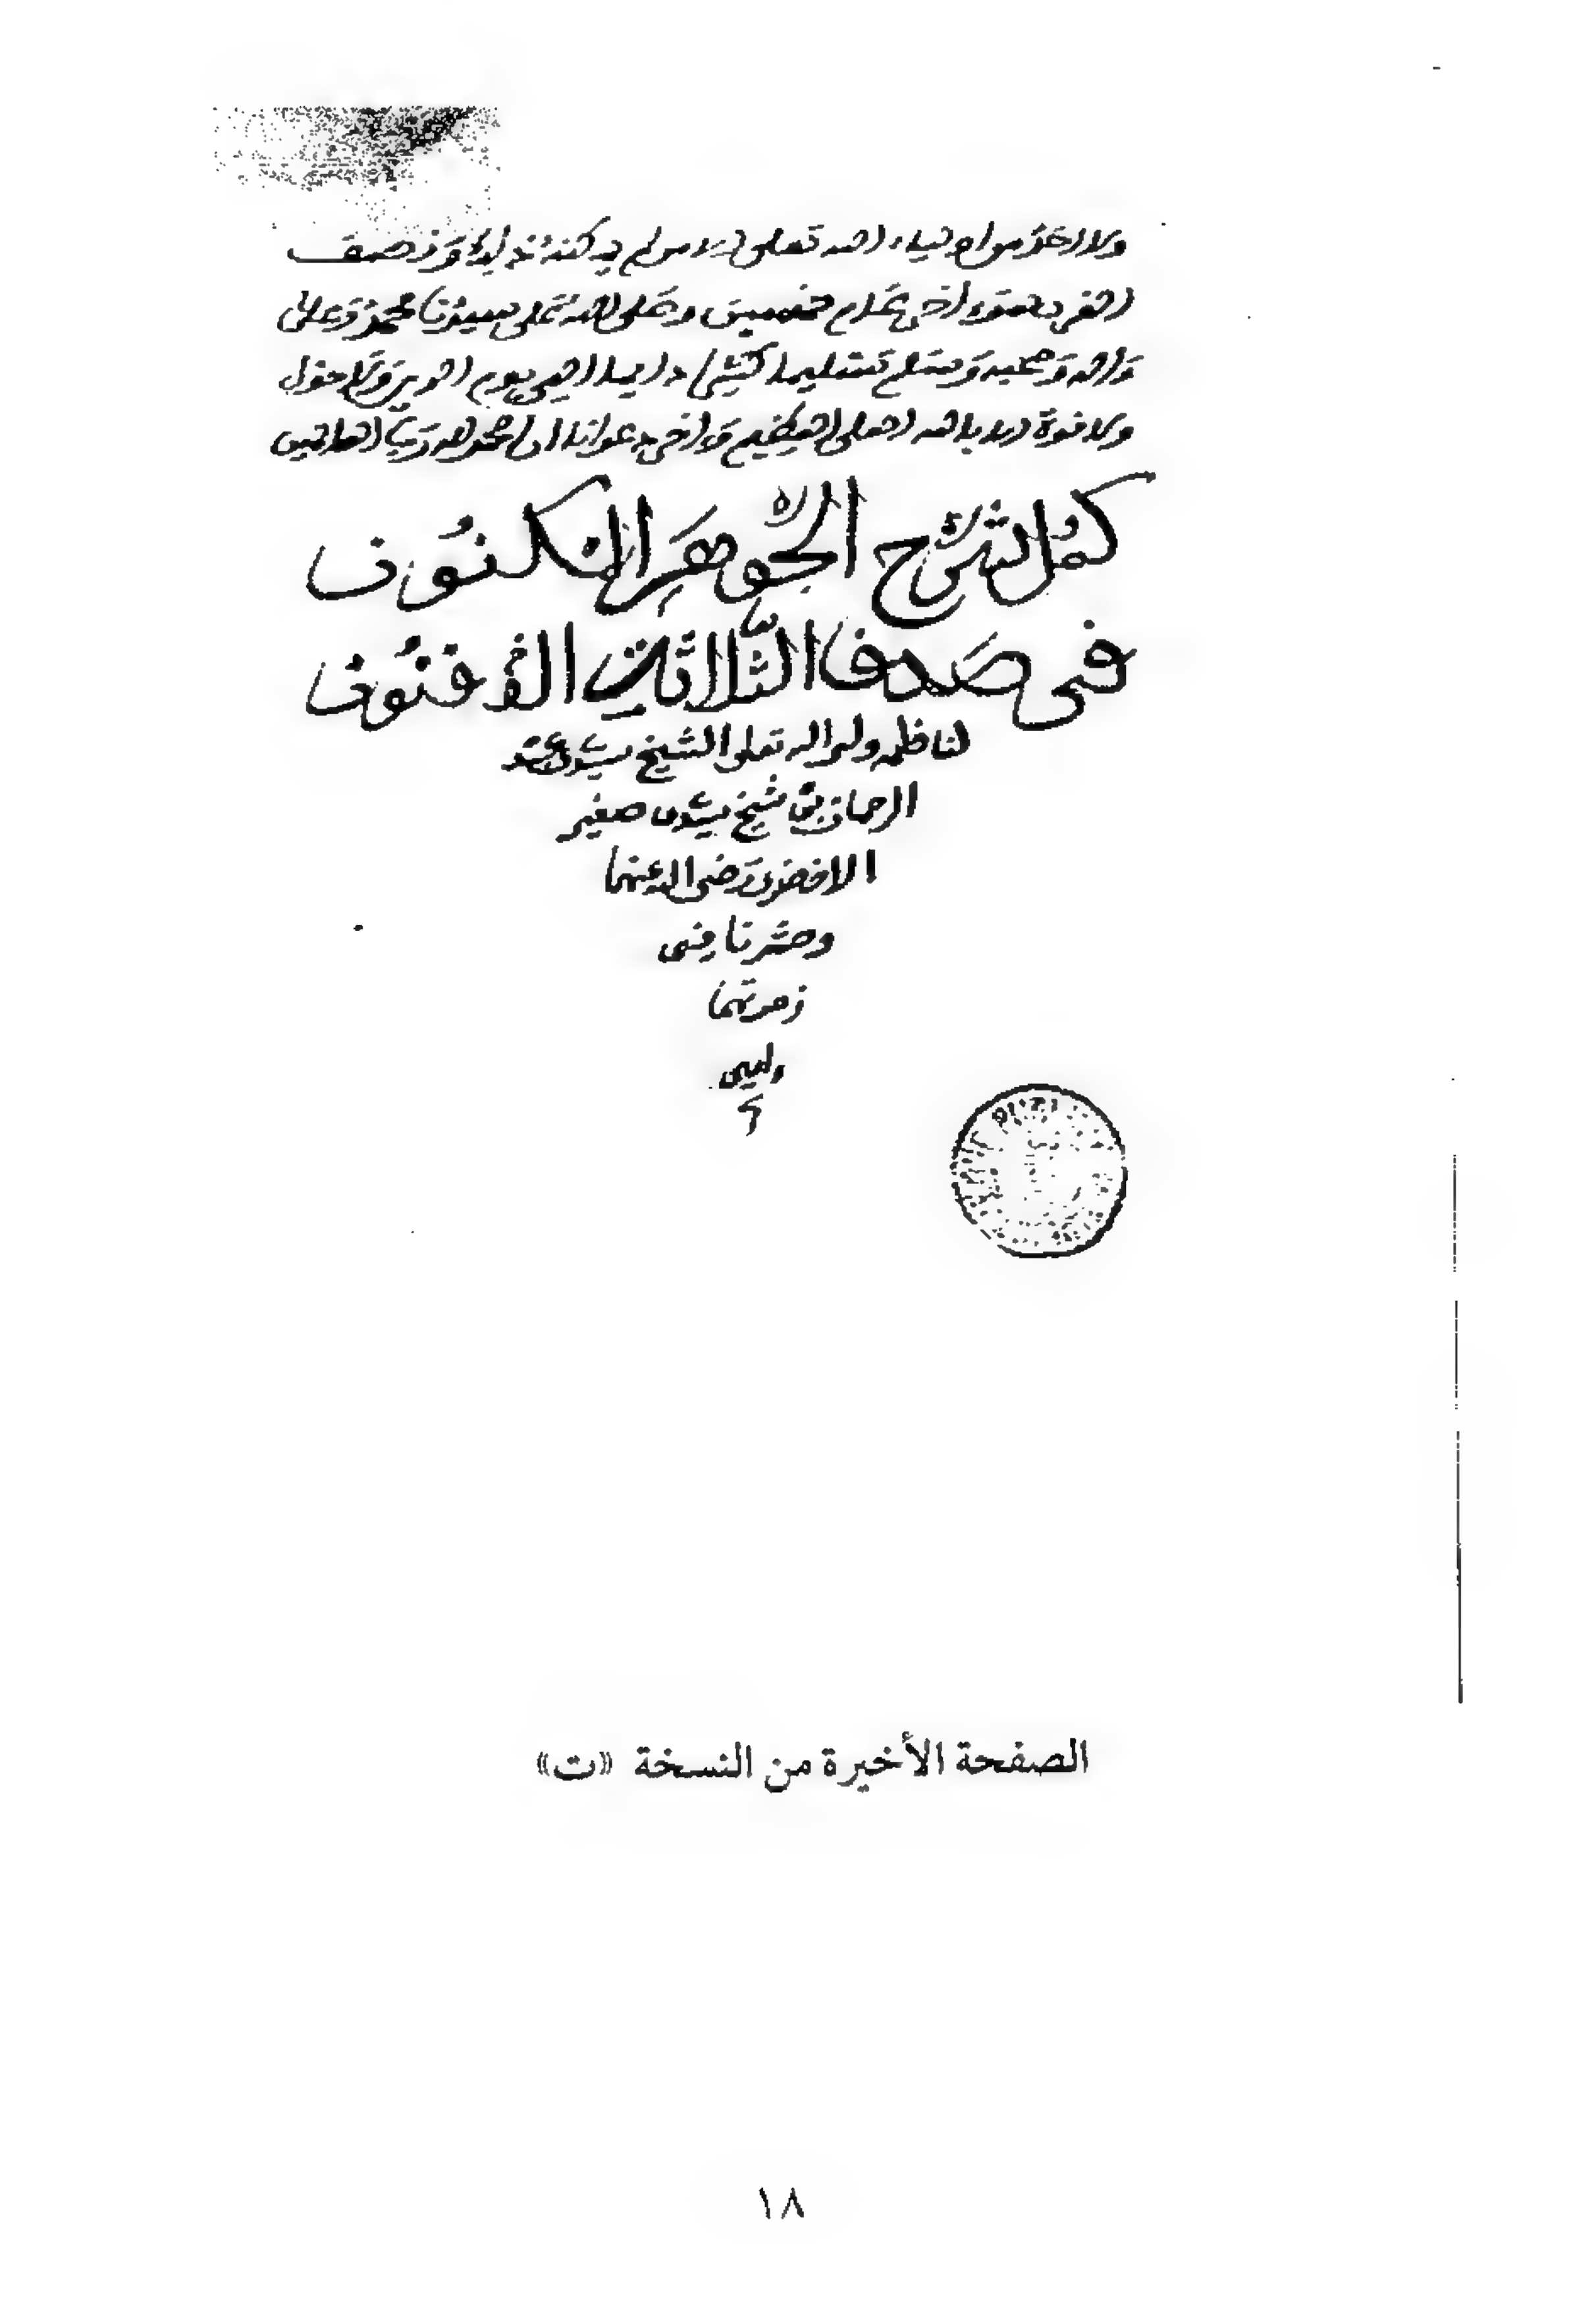 ولا احد من اولياء الله تعلى
وصلى الله على سيدنا محمد وعلى
واله وصحبه وسلم تسليما كثيرا دايما الى يوم الدين ولا حول
ولا قوة الا بالله العلى العظيم واخر دعوانا ان الحمد لله رب العالمين
كمل شرح الجوهر المكنون
فى صدف الثلاثة الفنون
لناظمه ولى الله تعلى الشيخ سيدى عبد
الرحمان بن شيخ سيدى صغير
الاخضرى رضى الله عنهما
وحشرنا فى
زمرتهما
ءامين
الصفحة الأخيرة من النسخة «ت»
١٨